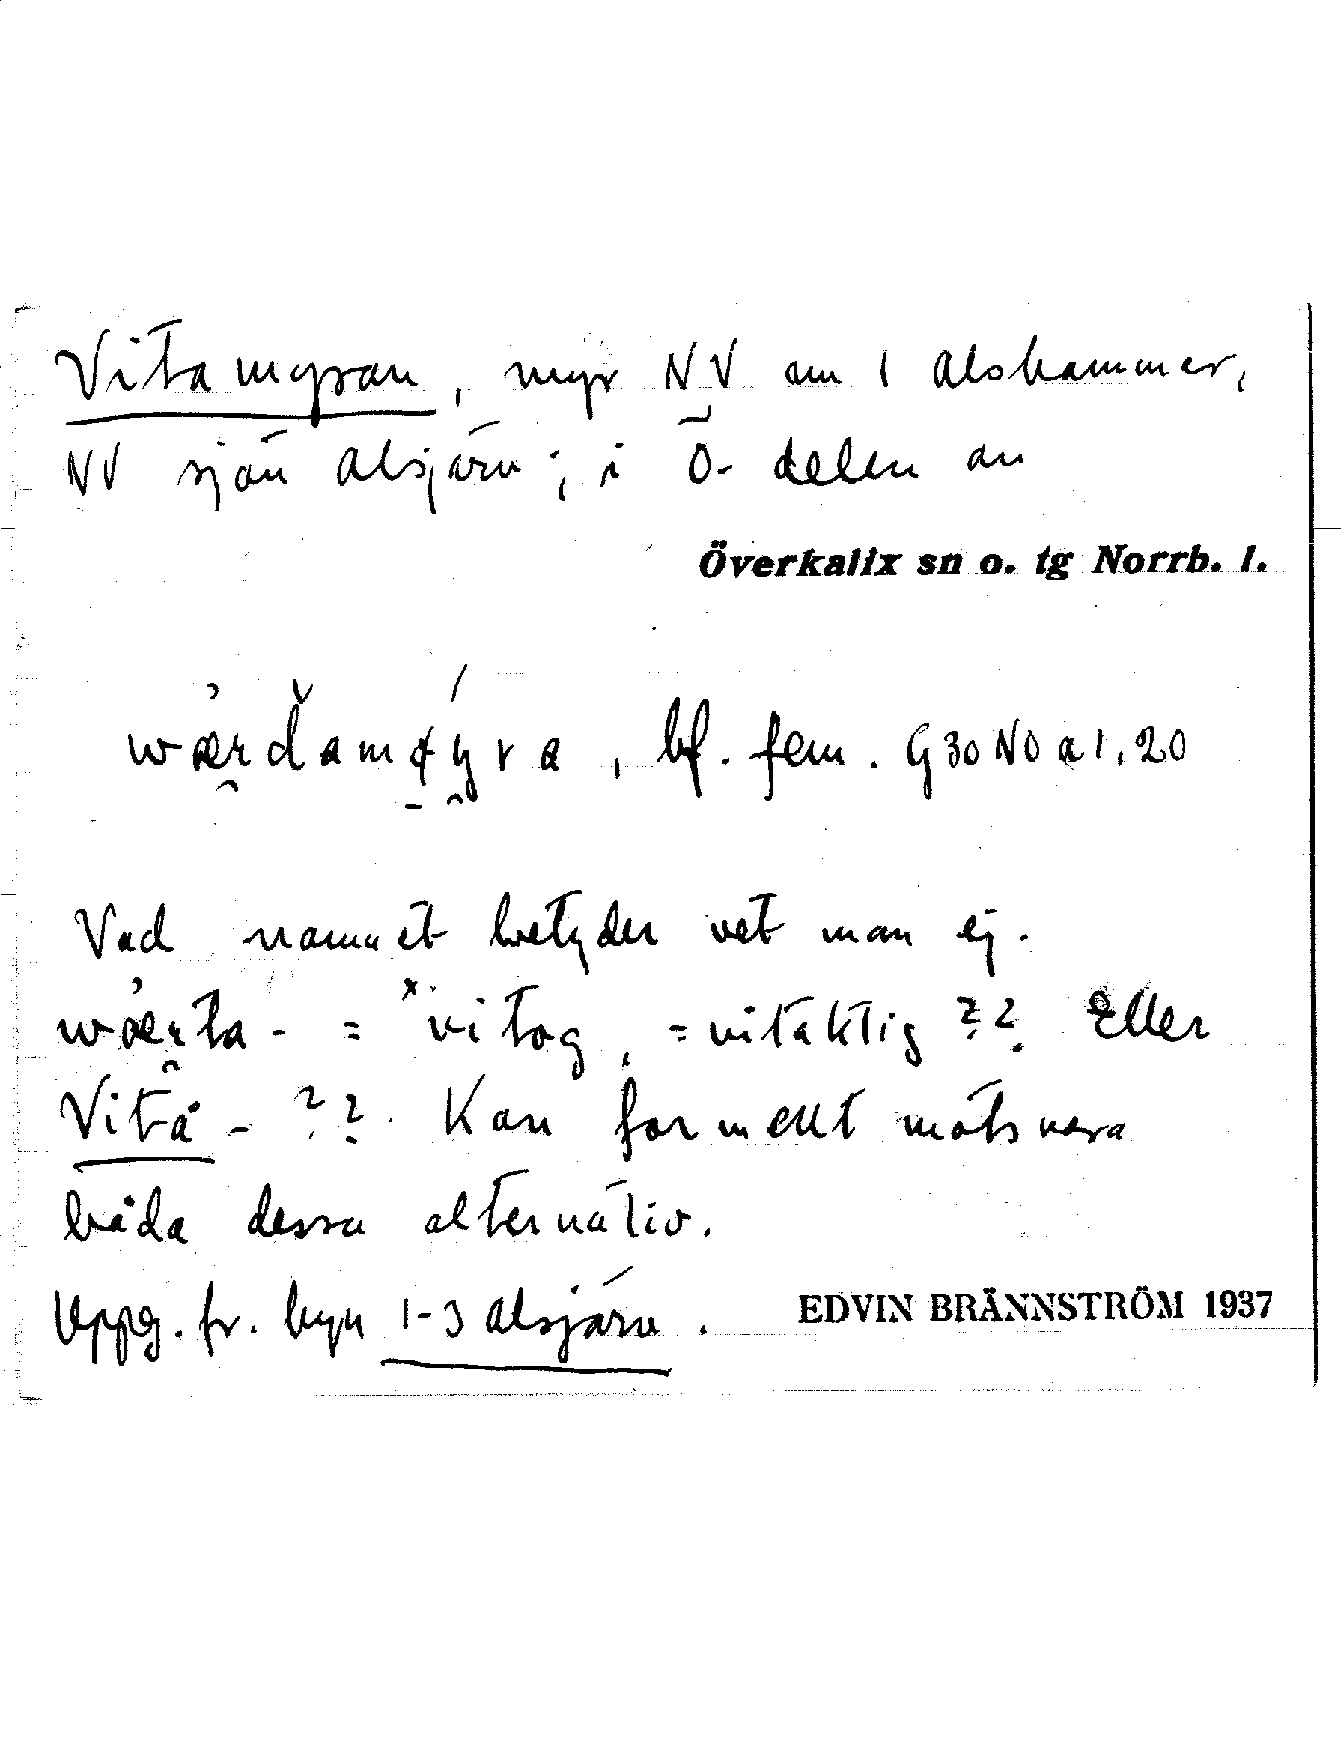 Vitamyran, myr NV om 1 Alshammer,
NV sjön Alsjärv; i Ö-delen av
Överkalix sn o. tg Norrb. l.
bf. fem. G30 NO a 1, 20
Vad namnet betyder vet man ej.
wærta- = *vitog, = vitaktig ?? Eller
Vitå- ??. Kan formellt motsvara
båda dessa alternativ.
Uppg. fr. byn 1-3 Alsjärv. EDVIN BRÄNNSTRÖM 1937